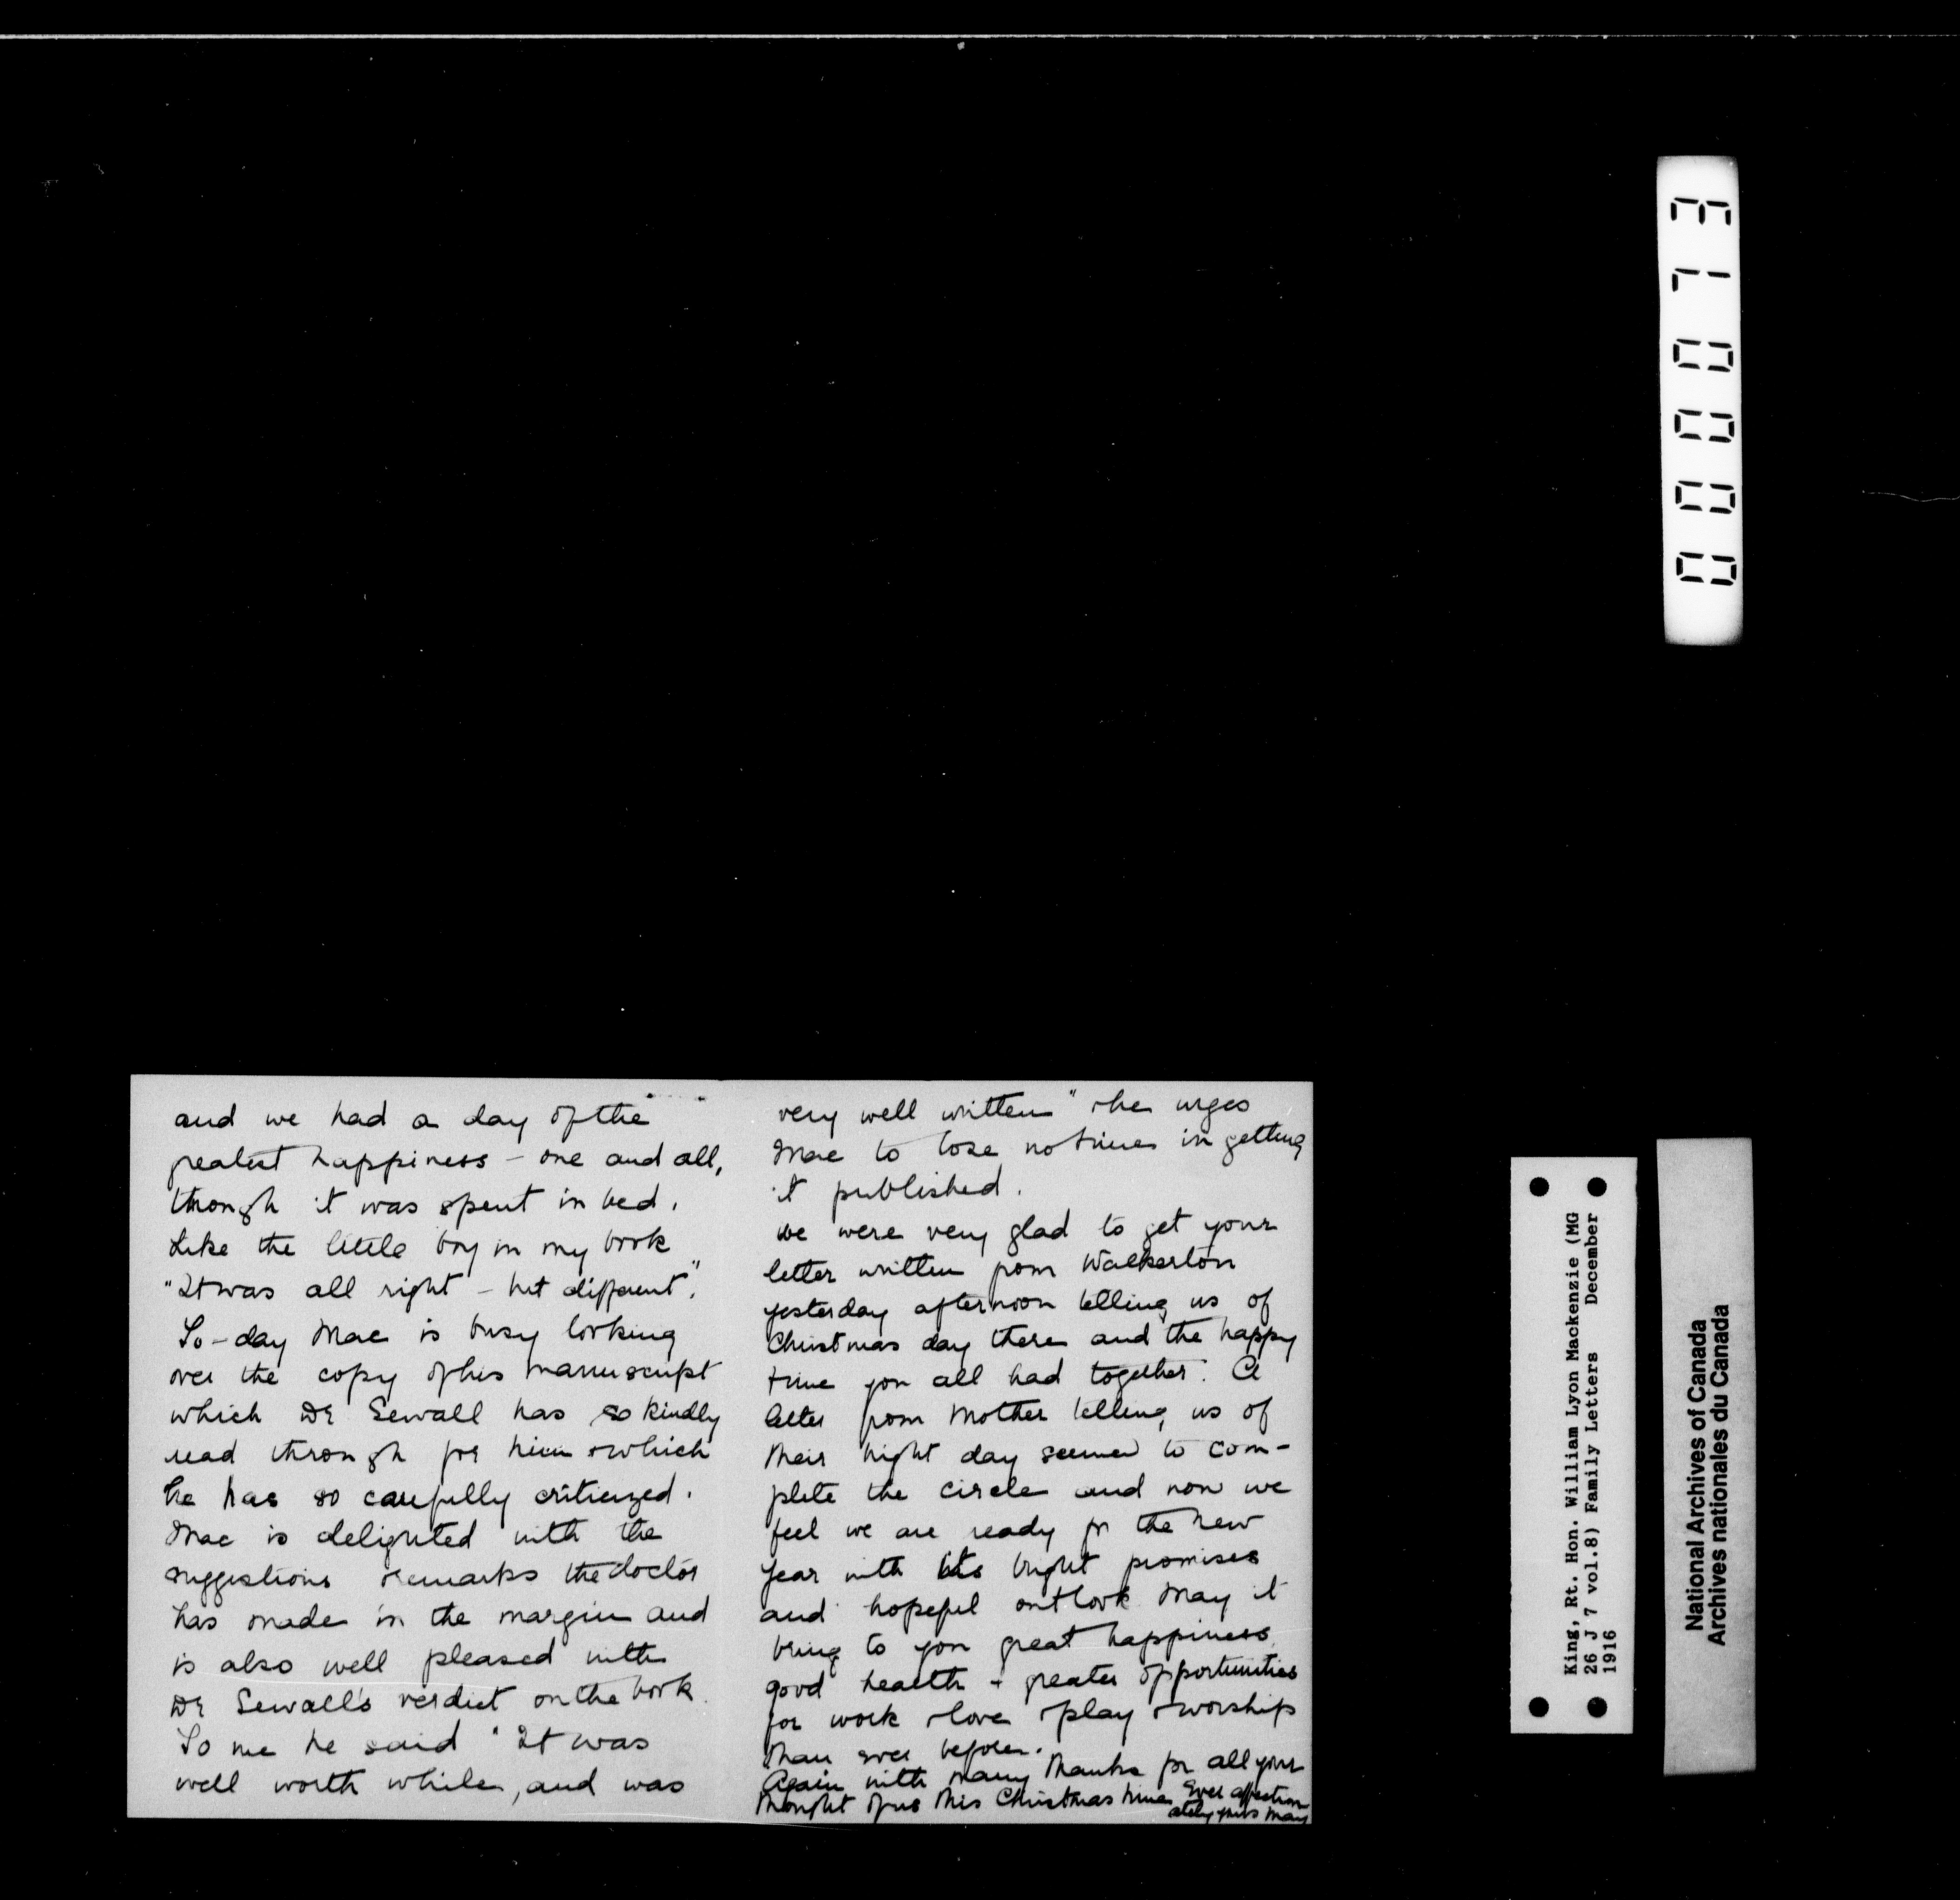 and we had a day of the
greatest happiness – one and all,
though it was spent in bed.
Like the little boy in my book
"It was all right – but different".
To-day Mac is busy looking
over the copy of his manuscript
which Dr Sewall has so kindly
read through for him + which
he has so carefully criticized.
Mac is delighted with the
suggestions + remarks the doctor
has made in the margin and
is also well pleased with
Dr Sewall's verdict on the book.
To me he said "It was
well worth while, and was
very well written" + he urges
Mac to lose no time in getting
it published.
We were very glad to get your
letter written from Walkerton
yesterday afternoon telling us of
Christmas day there and the happy
time you all had together. A
letter from Mother telling us of
their bright day seemed to com-
plete the circle and now we
feel we are ready for the new
year with its bright promises
and hopeful outlook May it
bring to you great happiness,
good health + greater opportunities
for work + love + play + worship
than ever before.
Again with many thanks for all your
thought of us this Christmas time Ever affection
ately yours May
000013
King, Rt. Hon. William Lyon Mackenzie (MG
26 J 7 vol.8) Family Letters December
1916
National Archives of Canada
Archives nationales du Canada